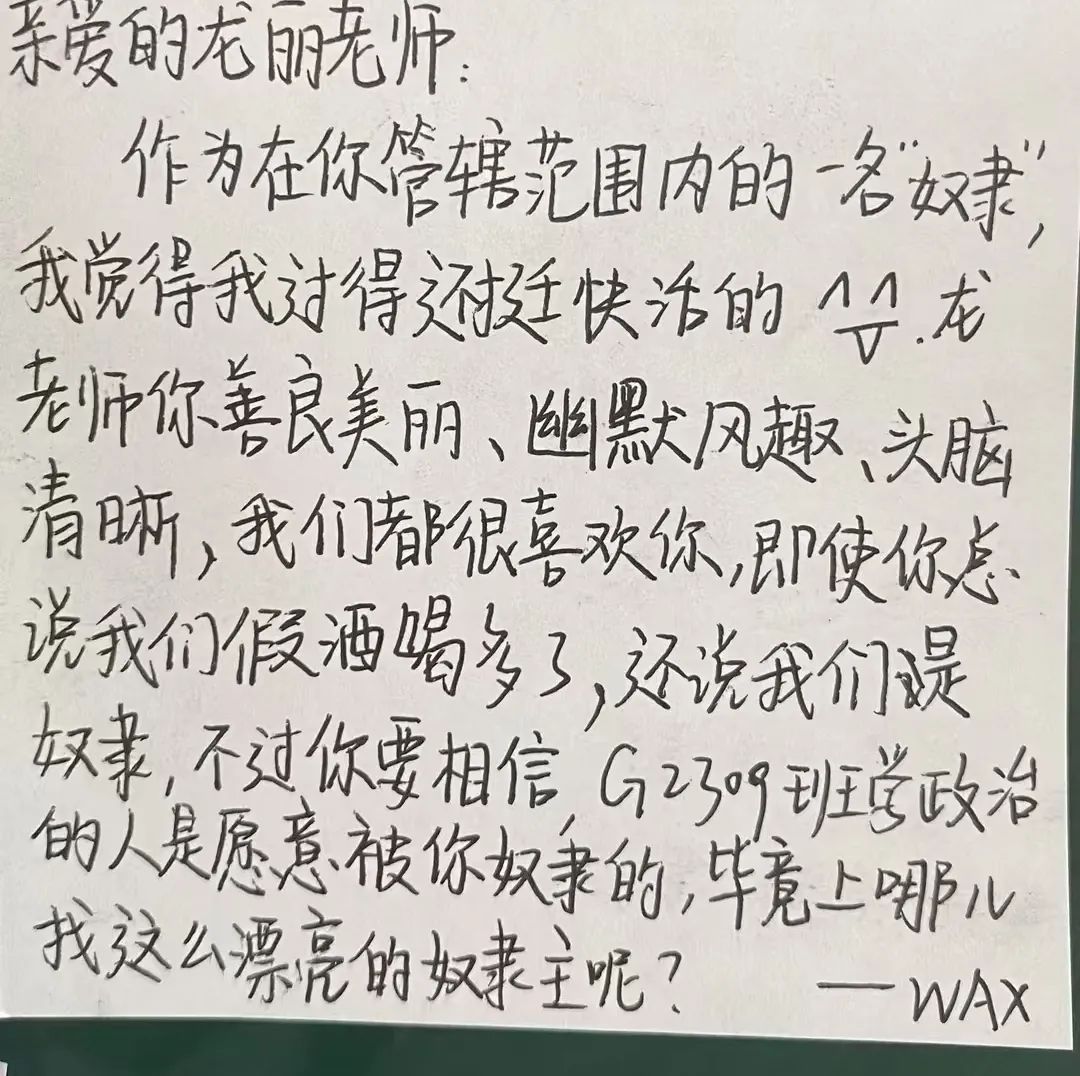 亲爱的龙丽老师:
作为在你管辖范围内的一名“奴隶”,
我觉得我过得还挺快活的 ^▽^.龙
老师你善良美丽、幽默风趣、头脑
清晰,我们都很喜欢你,即使你总
说我们假酒喝多了,还说我们是
奴隶,不过你要相信,G2309班学政治
的人是愿意被你奴隶的,毕竟上哪儿
找这么漂亮的奴隶主呢?
——WAX